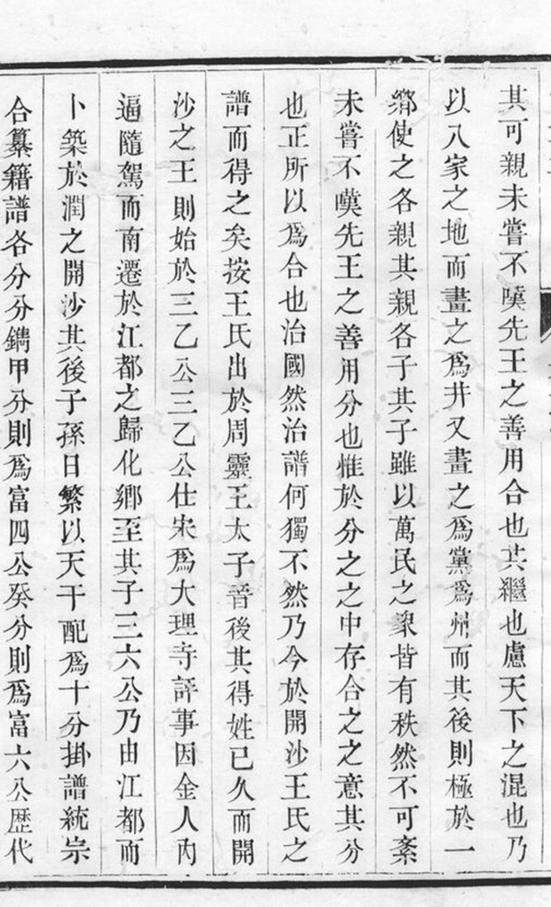 其可親未嘗不嘆先王之善用合也其繼也慮天下之混也乃
以八家之地而畫之爲井又畫之爲黨爲州而其後則極於一
鄉使之各親其親各子其子雖以萬民之衆皆有秩然不可紊
未嘗不嘆先王之善用分也惟於分之之中存合之之意其分
也正所以爲合也治國然治譜何獨不然乃今於開沙王氏之
譜而得之矣按王氏出於周靈王太子晉後其得姓已久而開
沙之王則始於三乙公三乙公仕宋爲大理寺評事因金人內
逼隨駕而南遷於江都之歸化鄉至其子三六公乃由江都而
卜築於潤之開沙其後子孫日繁以天干配爲十分掛譜統宗
合纂籍譜各分分鐫甲分則爲富四公癸分則爲富六公歷代